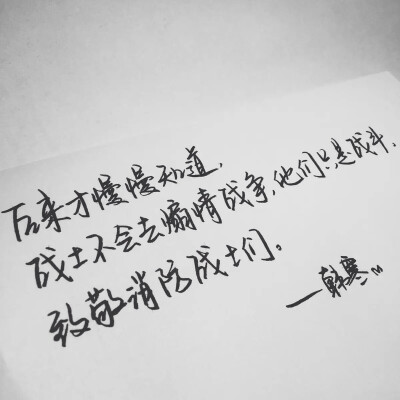 后来才慢慢知道,
战士不会去煽情战争,他们只是战斗.
致敬消防战士们。
——韩寒